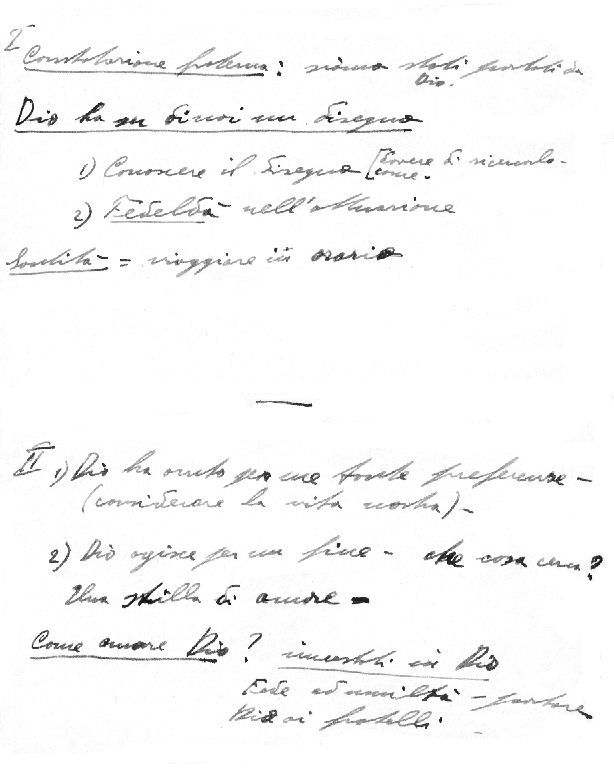 I
Constatazione paterna: siamo stati portati da
Dio.
Dio ha su di noi un disegno
1) Conoscere il disegno [dovere di ricercarlo -
come.
2) Fedeltà nell'attuazione
Santità = viaggiare in orario
II 1) Dio ha avuto per me tante preferenze -
(considerare la vita nostra) -
2) Dio agisce per un fine - che cosa cerca?
Una stilla di amore =
Come amare Dio? innestati in Dio
Fede ed umiltà - portare
Dio ai fratelli.